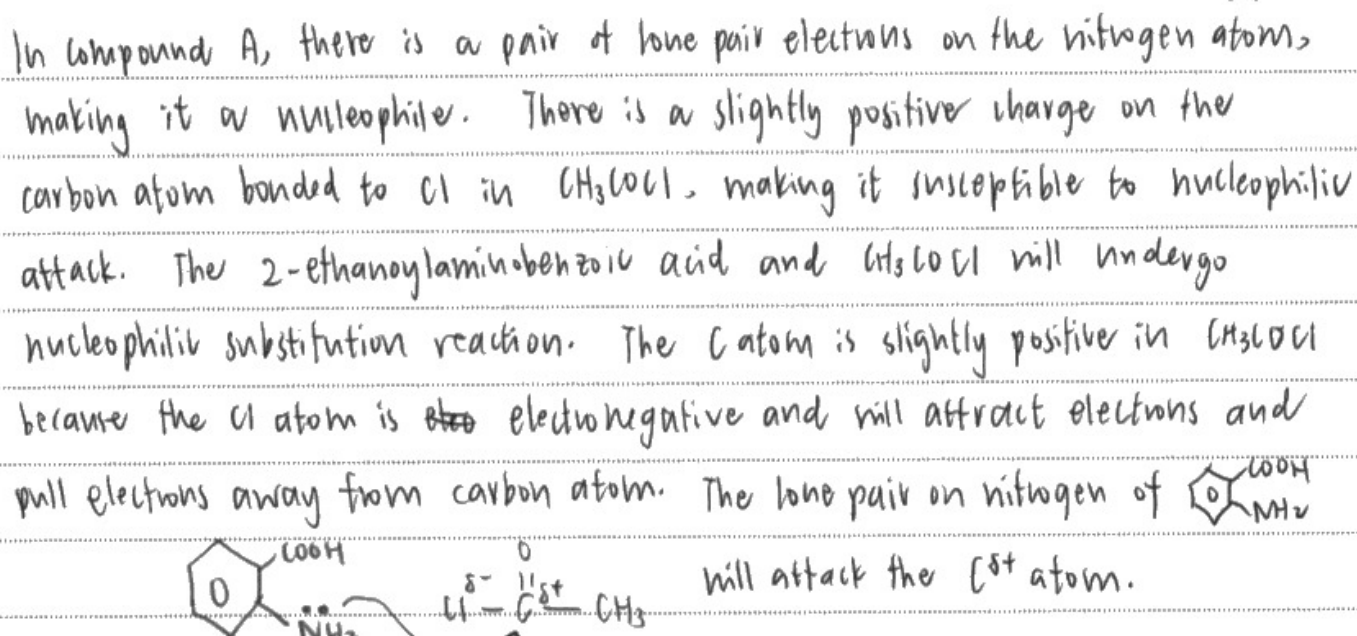 In compound A, there is a pair of lone pair electrons on the nitrogen atom,
making it a nucleophile. There is a slightly positive charge on the
carbon atom bonded to Cl in CH3COCl, making it susceptible to nucleophilic
attack. The 2-ethanoylaminobenzoic acid and CH3COCl will undergo
nucleophilic substitution reaction. The C atom is slightly positive in CH3COCl
because the Cl atom is electronegative and will attract electrons and
pull electrons away from carbon atom. The lone pair on nitrogen of COOH NH2
will attack the Cδ+ atom.
COOH
NH2
O
Cl δ- C δ+ CH3